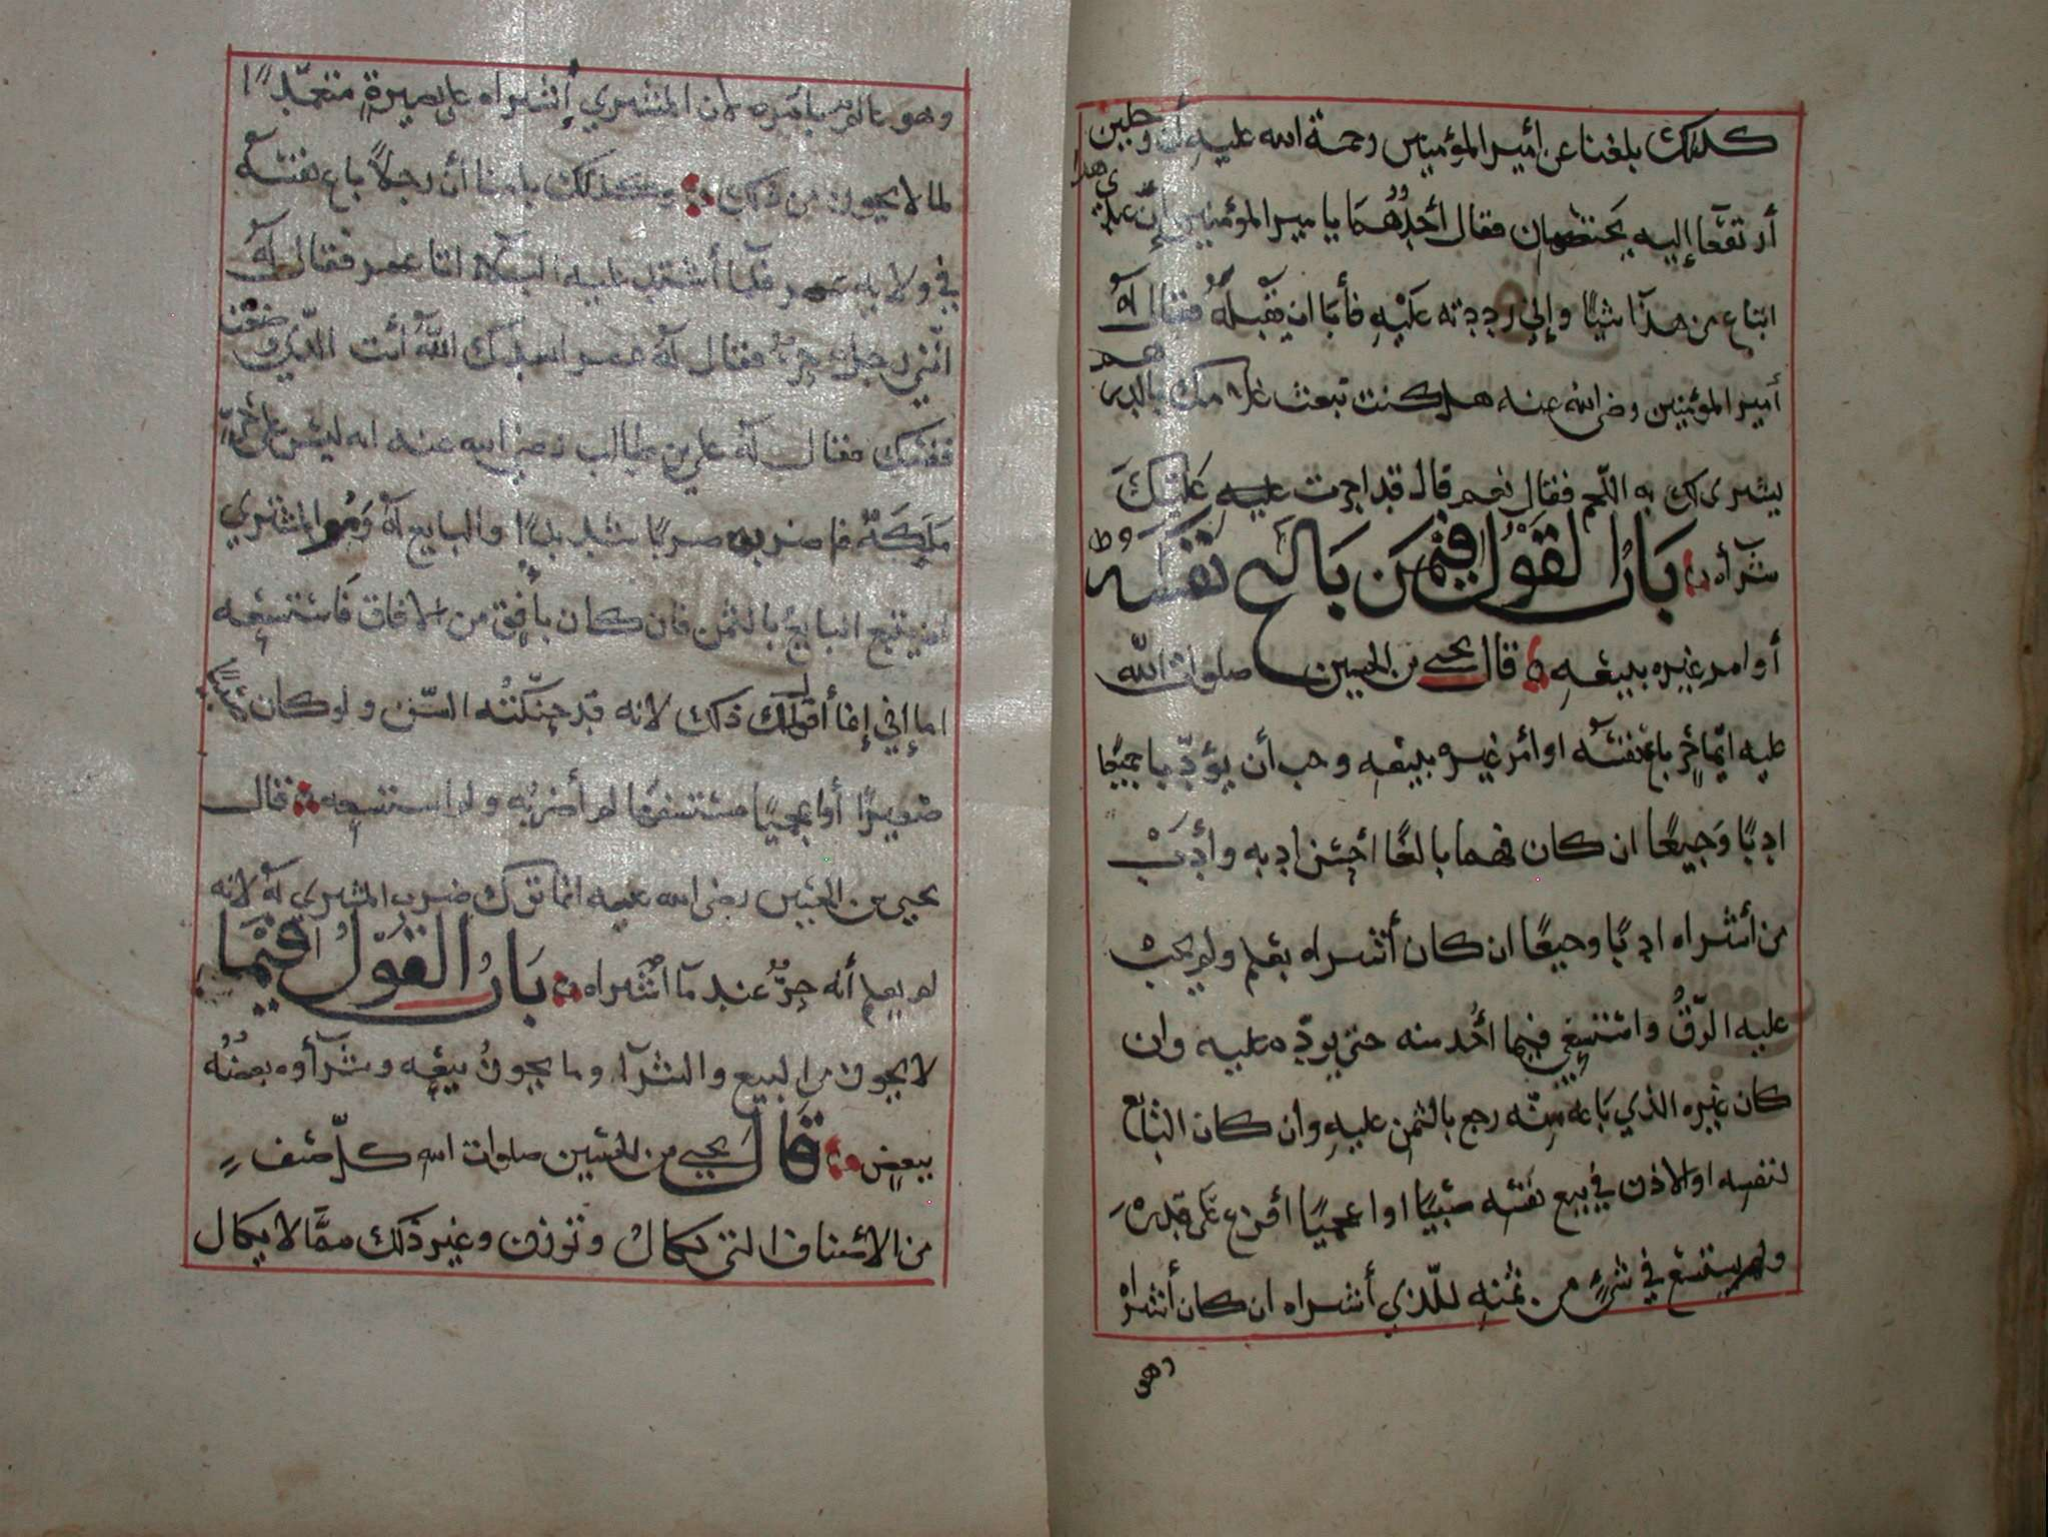 كذلك بلغنا عن أمير المؤمنين رحمة الله عليه أن رجلين
أرتفعا إليه يختصمان فقال أحدهما يا مير المؤمنين إن غلامي هذا
ابتاع من هذا شيًا وإني رددته عليه فأبا ان يقبله فقال له
أمير المؤمنين رضي الله عنه هل كنت تبعث غلامك بالدرهم
يشتري لك به اللحم فقال نعم قال قد اجزت عليك
شرآه باب القول فيمن باع نفسه
أو امر غيره ببيعه قال يحيى بن الحسين صلوات الله
عليه ايما حر باع نفسه او أمر غيره ببيعه وجب أن يؤدبا جميعًا
ادبًا وجيعًا ان كان فهما بالغًا أحسن ادبه وأدب
من أشتراه ادبًا وجيعًا ان كان أشتراه بعلم ولم يجب
عليه الرق واستسعي فيما أخذ منه حتى يوده عليه وان
كان غيره الذي باعه رجع بالثمن عليه وان كان البائع
لنفسه او الاذن في بيع نفسه صبيًا او اعجميًا أفزع على قدره
ولم يستسع في شيء من ثمنه للذي أشتراه ان كان أشتراه
وهو
وهو عالم بأمره لان المشتري إشتراه على بصيرة متعمدًا
لما لا يجوز من ذلك وكذلك بلغنا أن رجلاً باع نفسه
في ولاية عمر فلما أشتد عليه البلآء اتا عمر فقال له
انني رجل حر فقال له عمر ابعدك الله أنت الذي وضعت
نفسك فقال له علي بن طالب رضي الله عنه انه ليس على حر
ملكة فاضربه ضربًا شديدًا والبايع له ومر المشتري
ان يتبع البايع بالثمن فان كان بأفق من الافاق فاستسعه
اما إني إنما أقول لك ذلك لانه قد حنكته السن ولو كان
صغيرًا أو اعجميًا مستضعفًا لم أضربه ولم استسعه قال
يحيى بن الحسين رضي الله عليه انما ترك ضرب المشتري له لانه
لم يعلم أنه حر عند مآ اشتراه باب القول فيما
لا يجوز من البيع والشرآء وما يجوز بيعه وشرآوه بعضه
ببعض قال يحيى بن الحسين صلوات الله كل صنف
من الاصناف التي تكال وتوزن وغير ذلك مما لا يكال